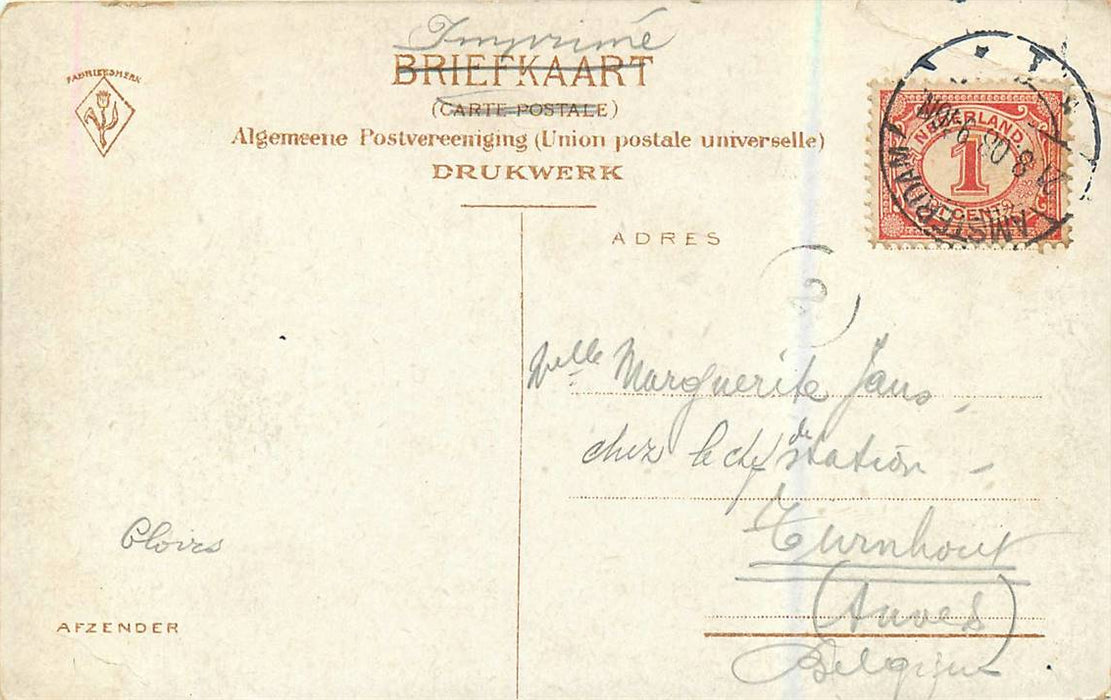 Imprimé
FABRIEKSMERK
BRIEFKAART
(CARTE POSTALE)
Algemeene Postvereeniging (Union postale universelle)
DRUKWERK
NEDERLAND
1
CENT
AMSTERDAM
ADRES
2
Melle Marguerite Jans
chez le chef de station
Turnhout
(Anvers)
Belgique
AFZENDER